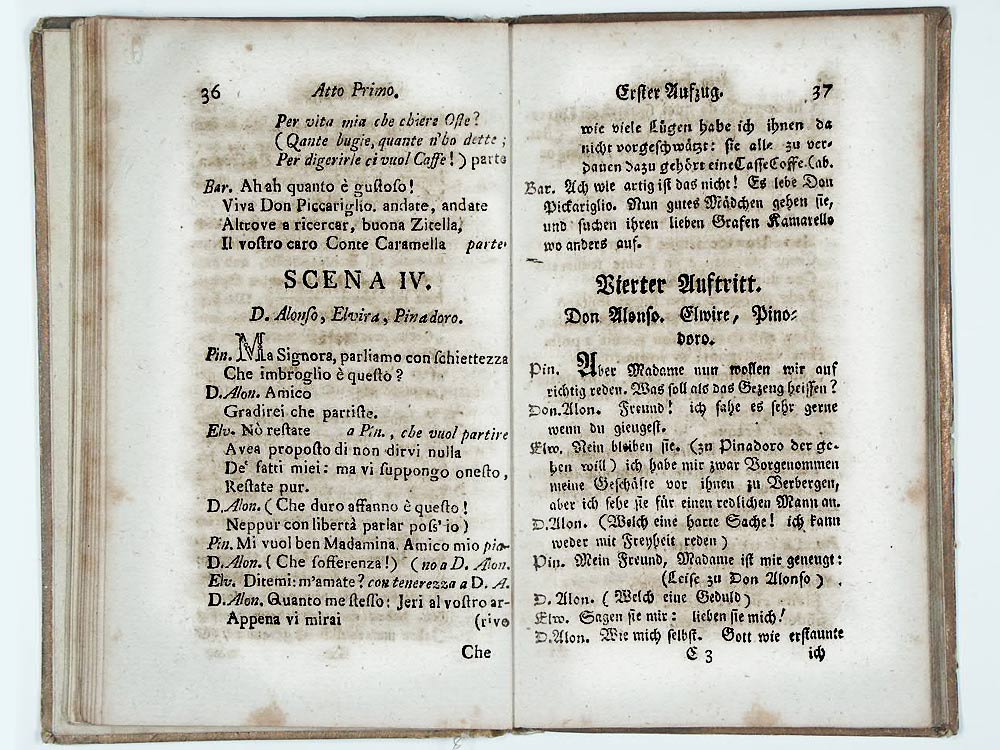 36 Atto Primo.
Per vita mia che chiere Oste?
(Qante bugie, quante n'ho dette;
Per digerirle ci vuol Caffe!) parte
Bar. Ah ah quanto è gustoso!
Viva Don Piccariglio. andate, andate
Altrove a ricercar, buona Zitella,
Il vostro caro Conte Caramella parte.
SCENA IV.
D. Alonso, Elvira, Pinadoro.
Pin. Ma Signora, parliamo con schiettezza
Che imbroglio è questo?
D. Alon. Amico
Gradirei che partiste.
Elv. Nò restate a Pin., che vuol partire
Avea proposto di non dirvi nulla
De' fatti miei: ma vi suppongo onesto,
Restate pur.
D. Alon. (Che duro affanno è questo!
Neppur con libertà parlar poss' io)
Pin. Mi vuol ben Madamina. Amico mio pia-
D. Alon. (Che sofferenza!) (no a D. Alon.
Elv. Ditemi: m'amate? con tenerezza a D. A.
D. Alon. Quanto me stesso: Jeri al vostro ar-
Appena vi mirai (rivo
Che
Erster Aufzug. 37
wie viele Lügen habe ich ihnen da
nicht vorgeschwätzt: sie alle zu ver-
dauen dazu gehört eine Casse Coffe. (ab.
Bar. Ach wie artig ist das nicht! Es lebe Don
Pickariglio. Nun gutes Mädchen gehen sie,
und suchen ihren lieben Grafen Kamarello
wo anders auf.
Vierter Auftritt.
Don Alonso. Elwire, Pino-
doro.
Pin. Aber Madame nun wollen wir auf
richtig reden. Was soll als das Gezeug heissen?
Don. Alon. Freund! ich sahe es sehr gerne
wenn du giengest.
Elw. Nein bleiben sie. (zu Pinadoro der ge-
hen will) ich habe mir zwar Vorgenommen
meine Geschäfte vor ihnen zu Verbergen,
aber ich sehe sie für einen redlichen Mann an.
D. Alon. (Welch eine harte Sache! ich kann
weder mit Freyheit reden)
Pin. Mein Freund, Madame ist mir geneugt:
(Leise zu Don Alonso)
D. Alon. (Welch eine Geduld)
Elw. Sagen sie mir: lieben sie mich!
D. Alon. Wie mich selbst. Gott wie erstaunte
C 3 ich